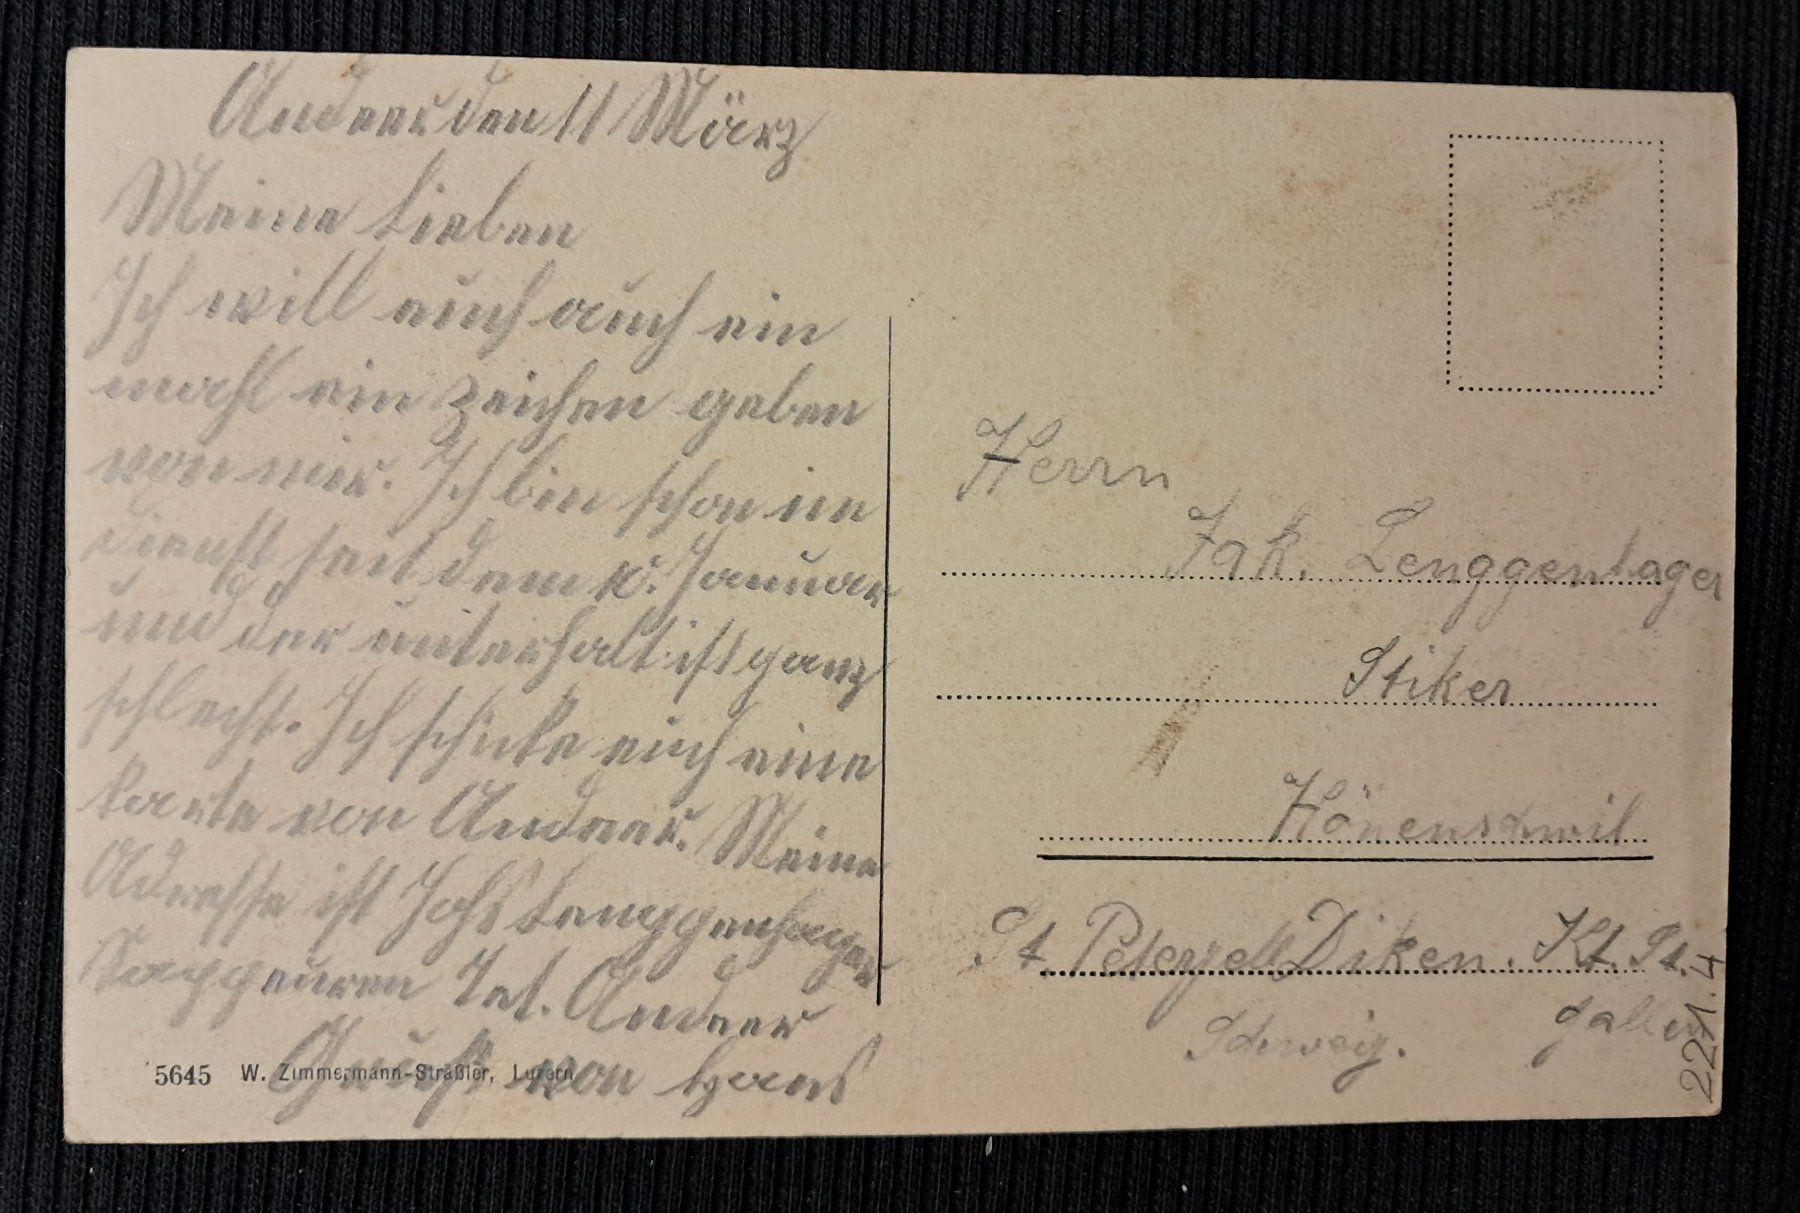 Andeer den 11 März
Meine Lieben
Ich will euch auch ein
mahl ein zeichen geben
von mir. Ich bin schon im
dienst seit dem Januar
und der unterhalt ist ganz
schlecht. Ich schike euch eine
karte von Andeer. Meine
Adresse ist Johs Lenggenhager
Andeer
Gruß von Hans
5645 W. Zimmermann-Sträßler, Luzern
Herrn
Jak. Lenggenhager
Stiker
St. Peterzell Diken. Kt. St.
gallen
Schweiz.
2221.4